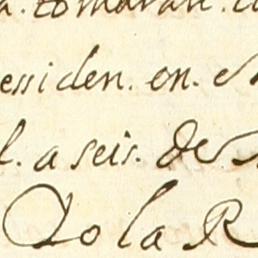 a. tomaran. c
essiden. en. e
l. a seis. de
Yo la R